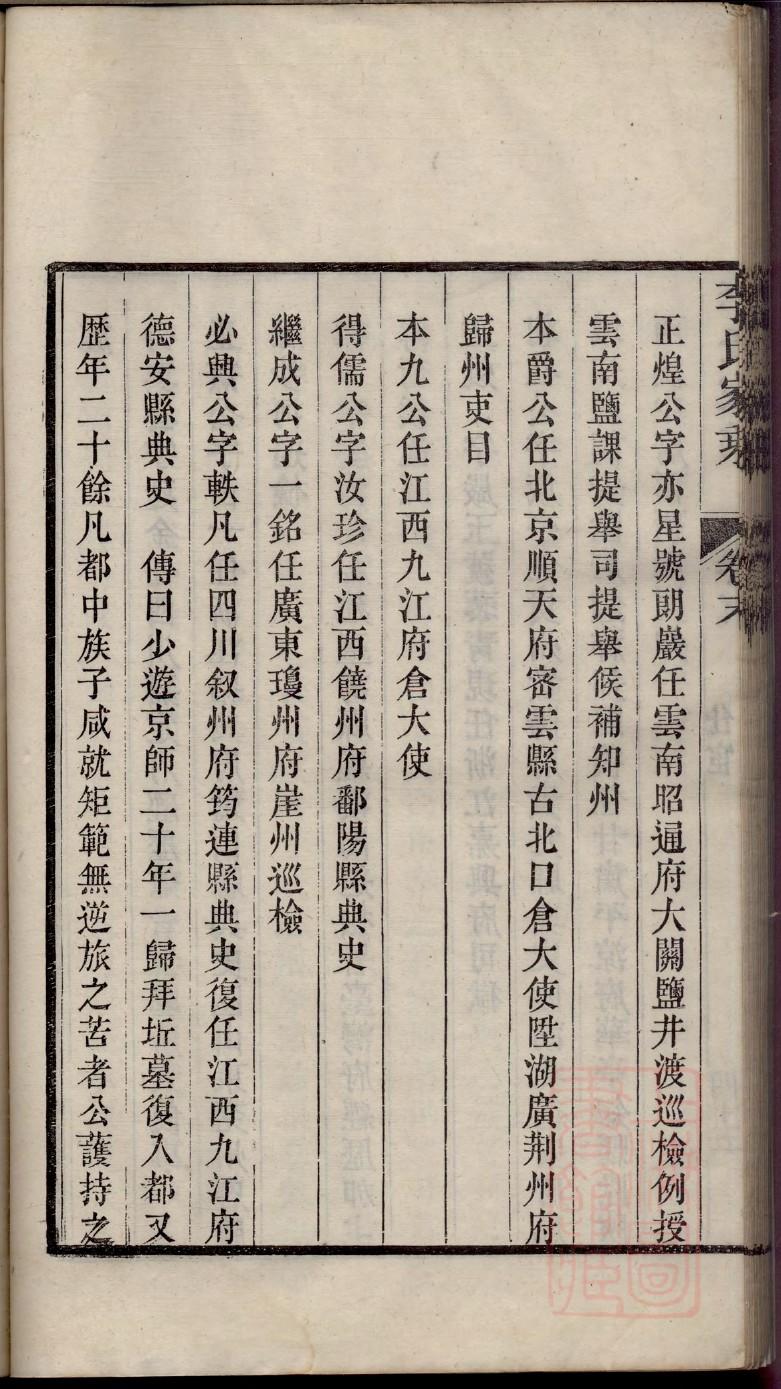 李氏家乘 卷末
正煌公字亦星號朗巖任雲南昭通府大關鹽井渡巡檢例授
雲南鹽課提舉司提舉候補知州
本爵公任北京順天府密雲縣古北口倉大使陞湖廣荆州府
歸州吏目
本九公任江西九江府倉大使
得儒公字汝珍任江西饒州府鄱陽縣典史
繼成公字一銘任廣東瓊州府崖州巡檢
必興公字軼凡任四川叙州府筠連縣典史復任江西九江府
德安縣典史　傳曰少遊京師二十年一歸拜坵墓復入都又
歷年二十餘凡都中族子咸就矩範無逆旅之苦者公護持之